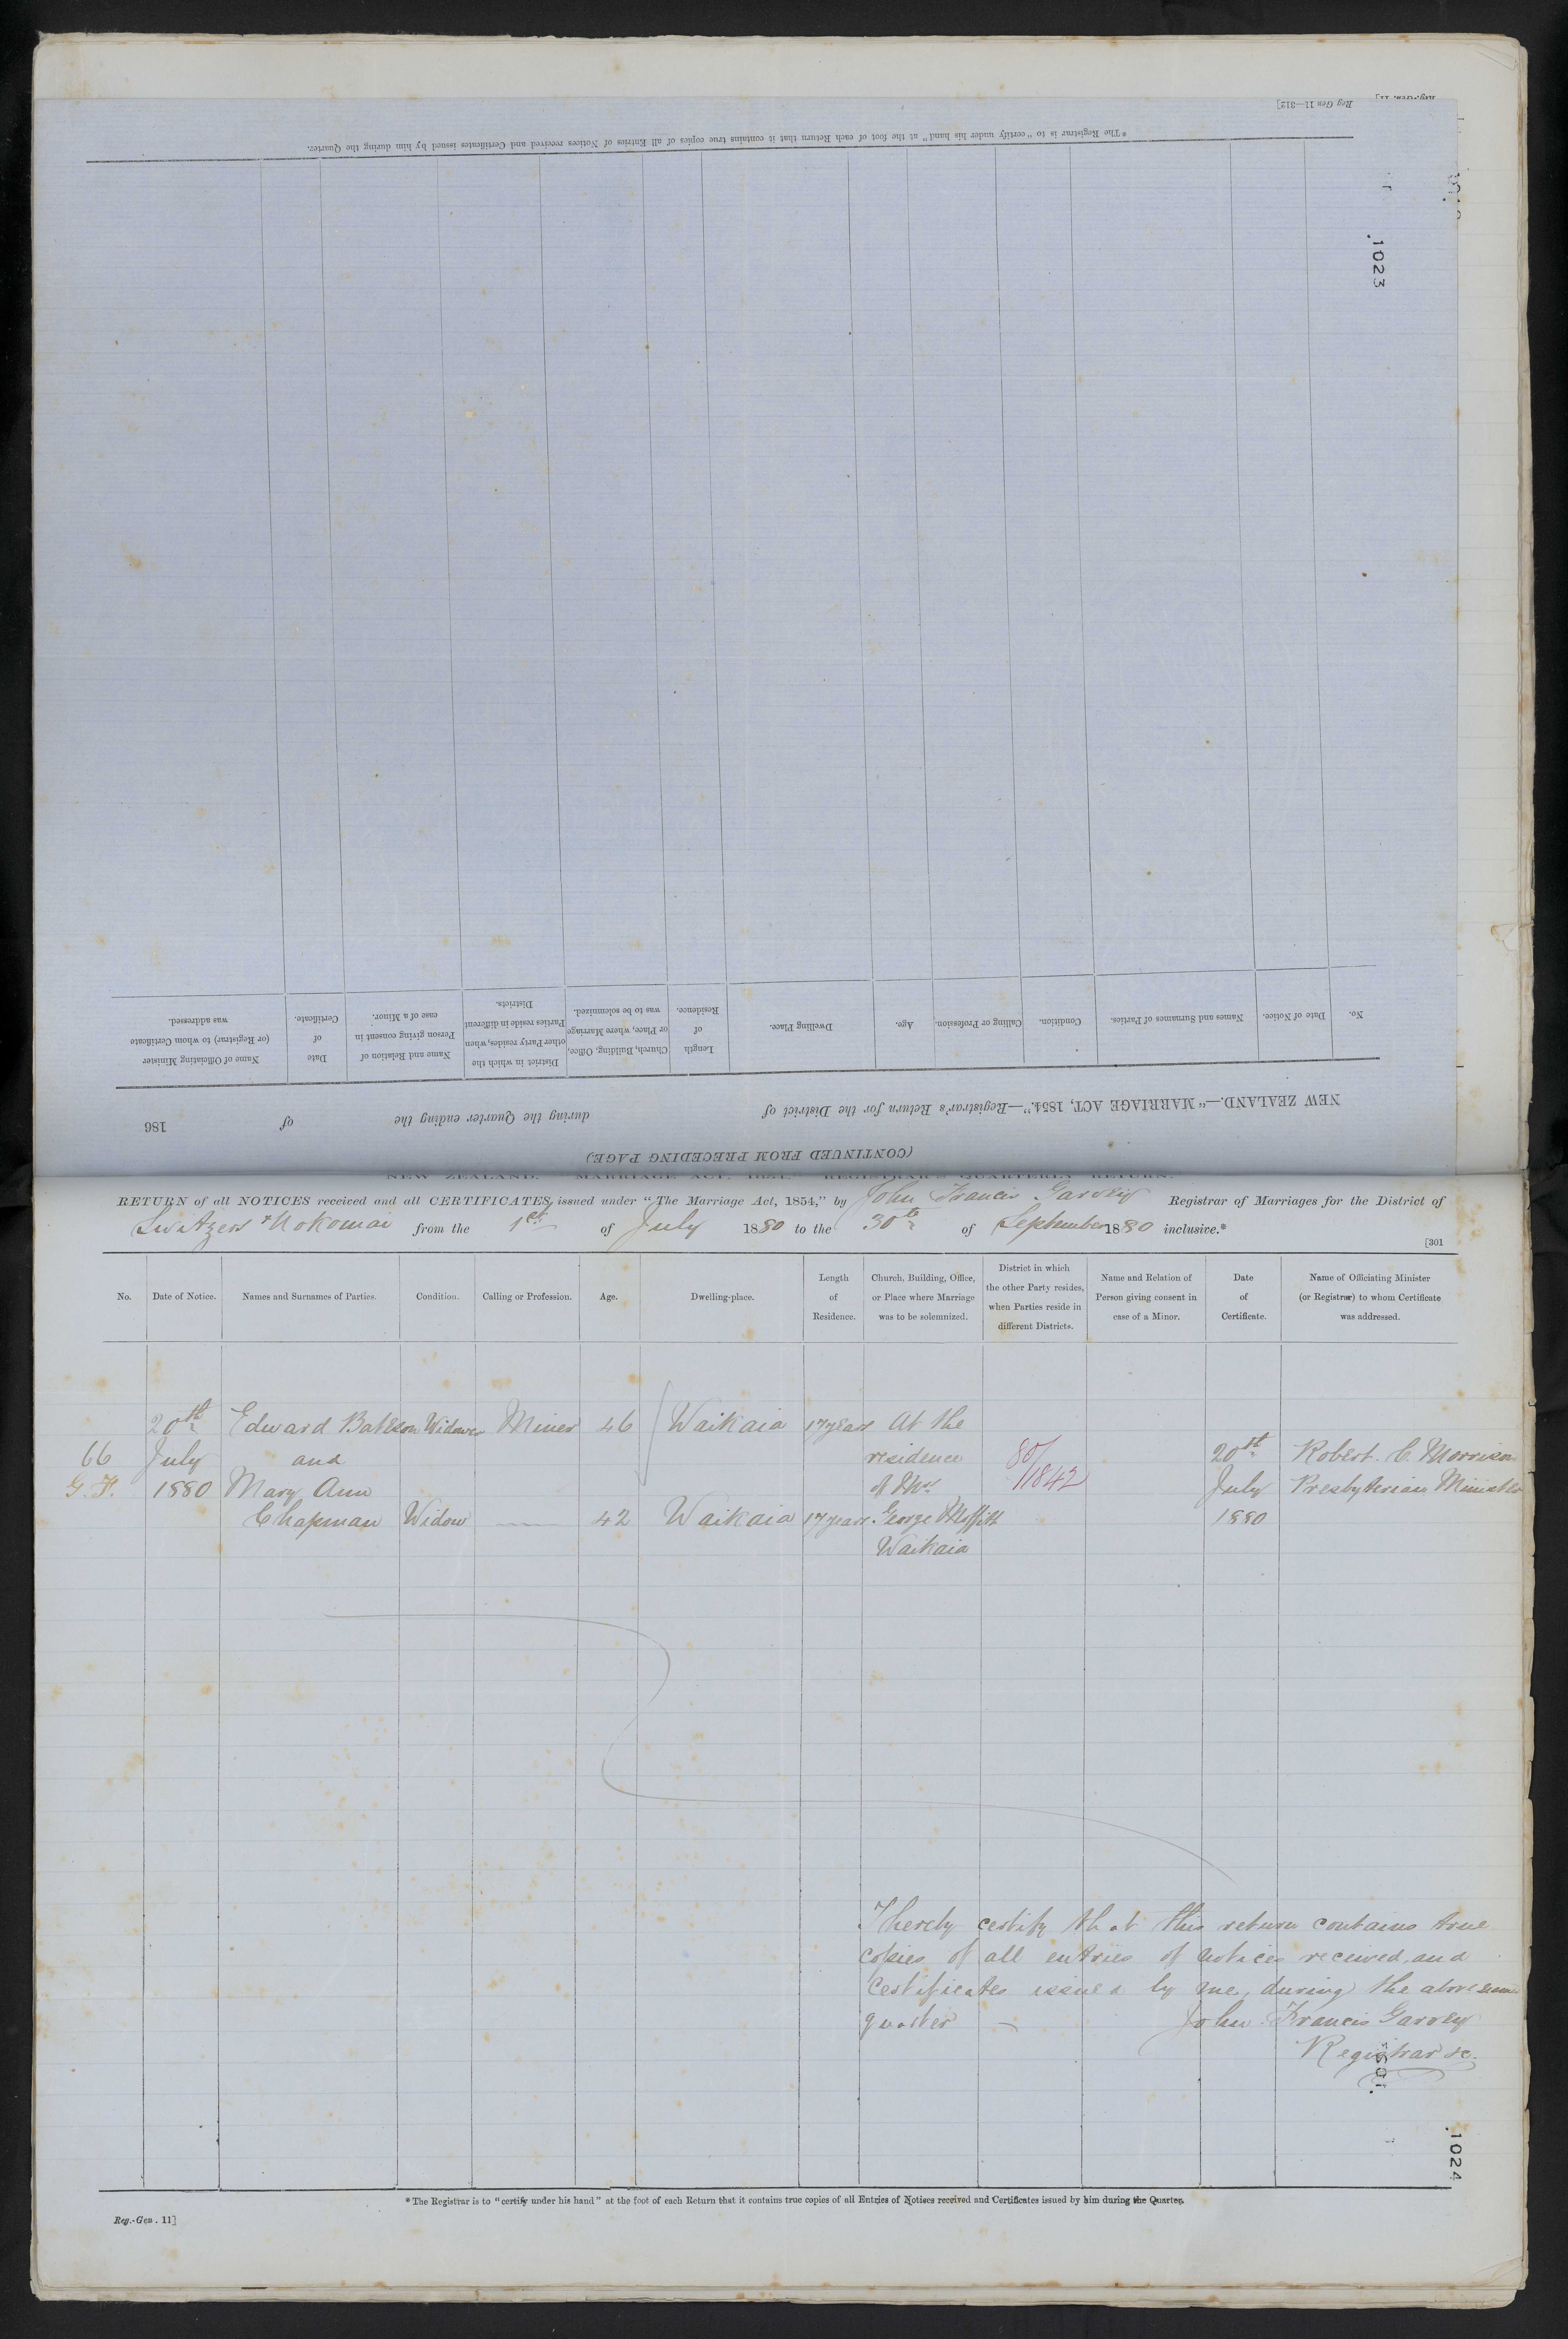 Reg Gen 11—312]
* The Registrar is to "certify under his hand" at the foot of each Return that it contains true copies of all Entries of Notices received and Certificates issued by him during the Quarter.
.1023
No.
Date of Notice.
Names and Surnames of Parties.
Condition.
Calling or Profession.
Age.
Dwelling Place.
Length of Residence.
Church, Building, Office, or Place, where Marriage was to be solemnized.
District in which the other Party resides, when Parties reside in different Districts.
Name and Relation of Person giving consent in case of a Minor.
Date of Certificate.
Name of Officiating Minister (or Registrar) to whom Certificate was addressed.
NEW ZEALAND.—"MARRIAGE ACT, 1854."—Registrar's Return for the District of during the Quarter ending the of 186
(CONTINUED FROM PRECEDING PAGE)
NEW ZEALAND.—"MARRIAGE ACT, 1854."—REGISTRAR'S QUARTERLY RETURN.
RETURN of all NOTICES received and all CERTIFICATES issued under "The Marriage Act, 1854," by John Francis Garvey Registrar of Marriages for the District of
Switzers & Nokomai from the 1st of July 1880 to the 30th of September 1880 inclusive.*
[301
No.
Date of Notice.
Names and Surnames of Parties.
Condition.
Calling or Profession.
Age.
Dwelling-place.
Length
of
Residence.
Church, Building, Office,
or Place where Marriage
was to be solemnized.
District in which
the other Party resides,
when Parties reside in
different Districts.
Name and Relation of
Person giving consent in
case of a Minor.
Date
of
Certificate.
Name of Officiating Minister
(or Registrar) to whom Certificate
was addressed.
20th Edward Bateson Widower Miner 46 Waikaia 17 years At the
66 July and residence 80/ 20th Robert. C. Morrison
G. F. 1880 Mary Ann of Mr. /1842 July Presbyterian Minister
Chapman Widow — 42 Waikaia 17 years. George Moffitt 1880
Waikaia
I hereby certify that this return contains true
copies of all entries of notices received, and
certificates issued by me, during the above
quarter — John Francis Garvey
Registrar &c.
.1024
* The Registrar is to "certify under his hand" at the foot of each Return that it contains true copies of all Entries of Notices received and Certificates issued by him during the Quarter.
Reg.-Gen. 11]